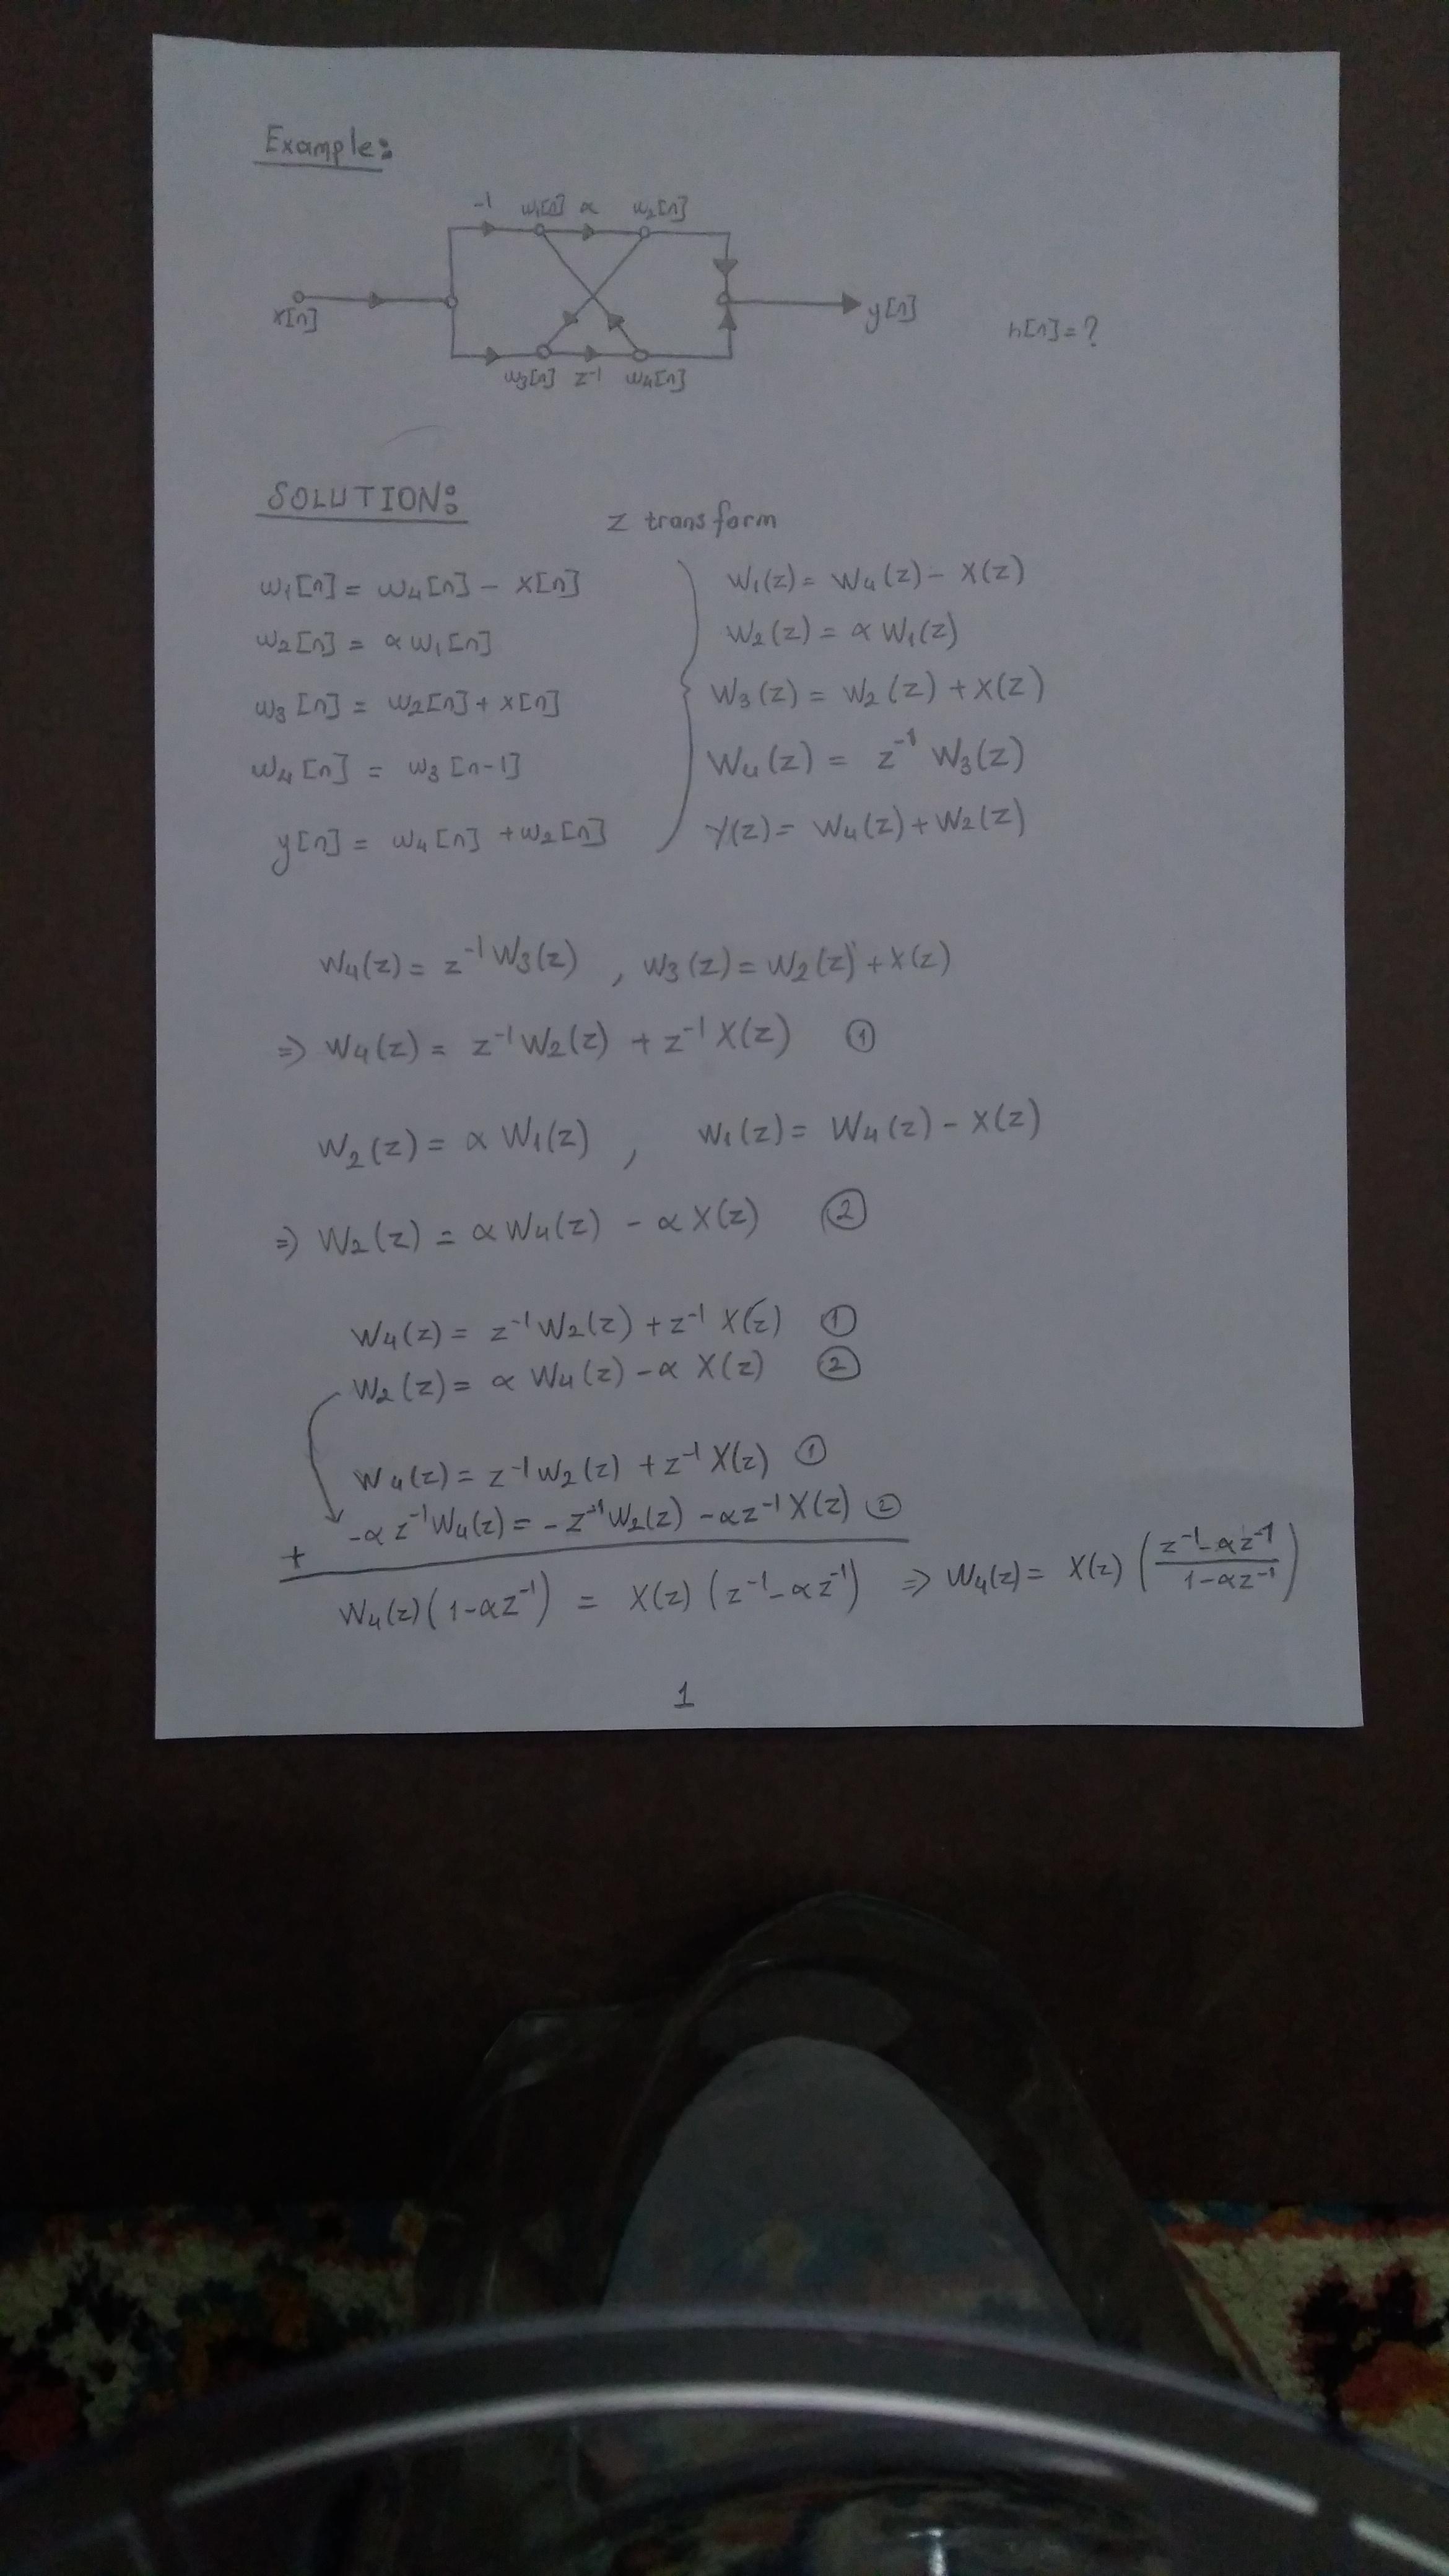 Example:
-1 w₁[n] α w₂[n]
x[n] y[n] h[n]=?
w₃[n] z⁻¹ w₄[n]
SOLUTION:
z transform
w₁[n] = w₄[n] - x[n] W₁(z) = W₄(z) - X(z)
w₂[n] = α w₁[n] W₂(z) = α W₁(z)
w₃[n] = w₂[n] + x[n] W₃(z) = W₂(z) + X(z)
w₄[n] = w₃[n-1] W₄(z) = z⁻¹ W₃(z)
y[n] = w₄[n] + w₂[n] Y(z) = W₄(z) + W₂(z)
W₄(z) = z⁻¹ W₃(z) , W₃(z) = W₂(z) + X(z)
⇒ W₄(z) = z⁻¹ W₂(z) + z⁻¹ X(z) ①
W₂(z) = α W₁(z) , W₁(z) = W₄(z) - X(z)
⇒ W₂(z) = α W₄(z) - α X(z) ②
W₄(z) = z⁻¹ W₂(z) + z⁻¹ X(z) ①
W₂(z) = α W₄(z) - α X(z) ②
W₄(z) = z⁻¹ W₂(z) + z⁻¹ X(z) ①
-α z⁻¹ W₄(z) = -z⁻¹ W₂(z) - α z⁻¹ X(z) ②
+
W₄(z) (1 - α z⁻¹) = X(z) (z⁻¹ - α z⁻¹) ⇒ W₄(z) = X(z) ((z⁻¹ - α z⁻¹)/(1 - α z⁻¹))
1